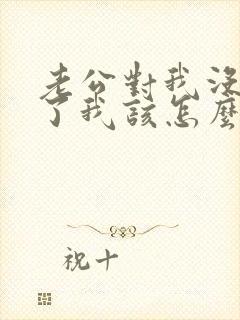 老公對我沒
了我該怎麼
祝十